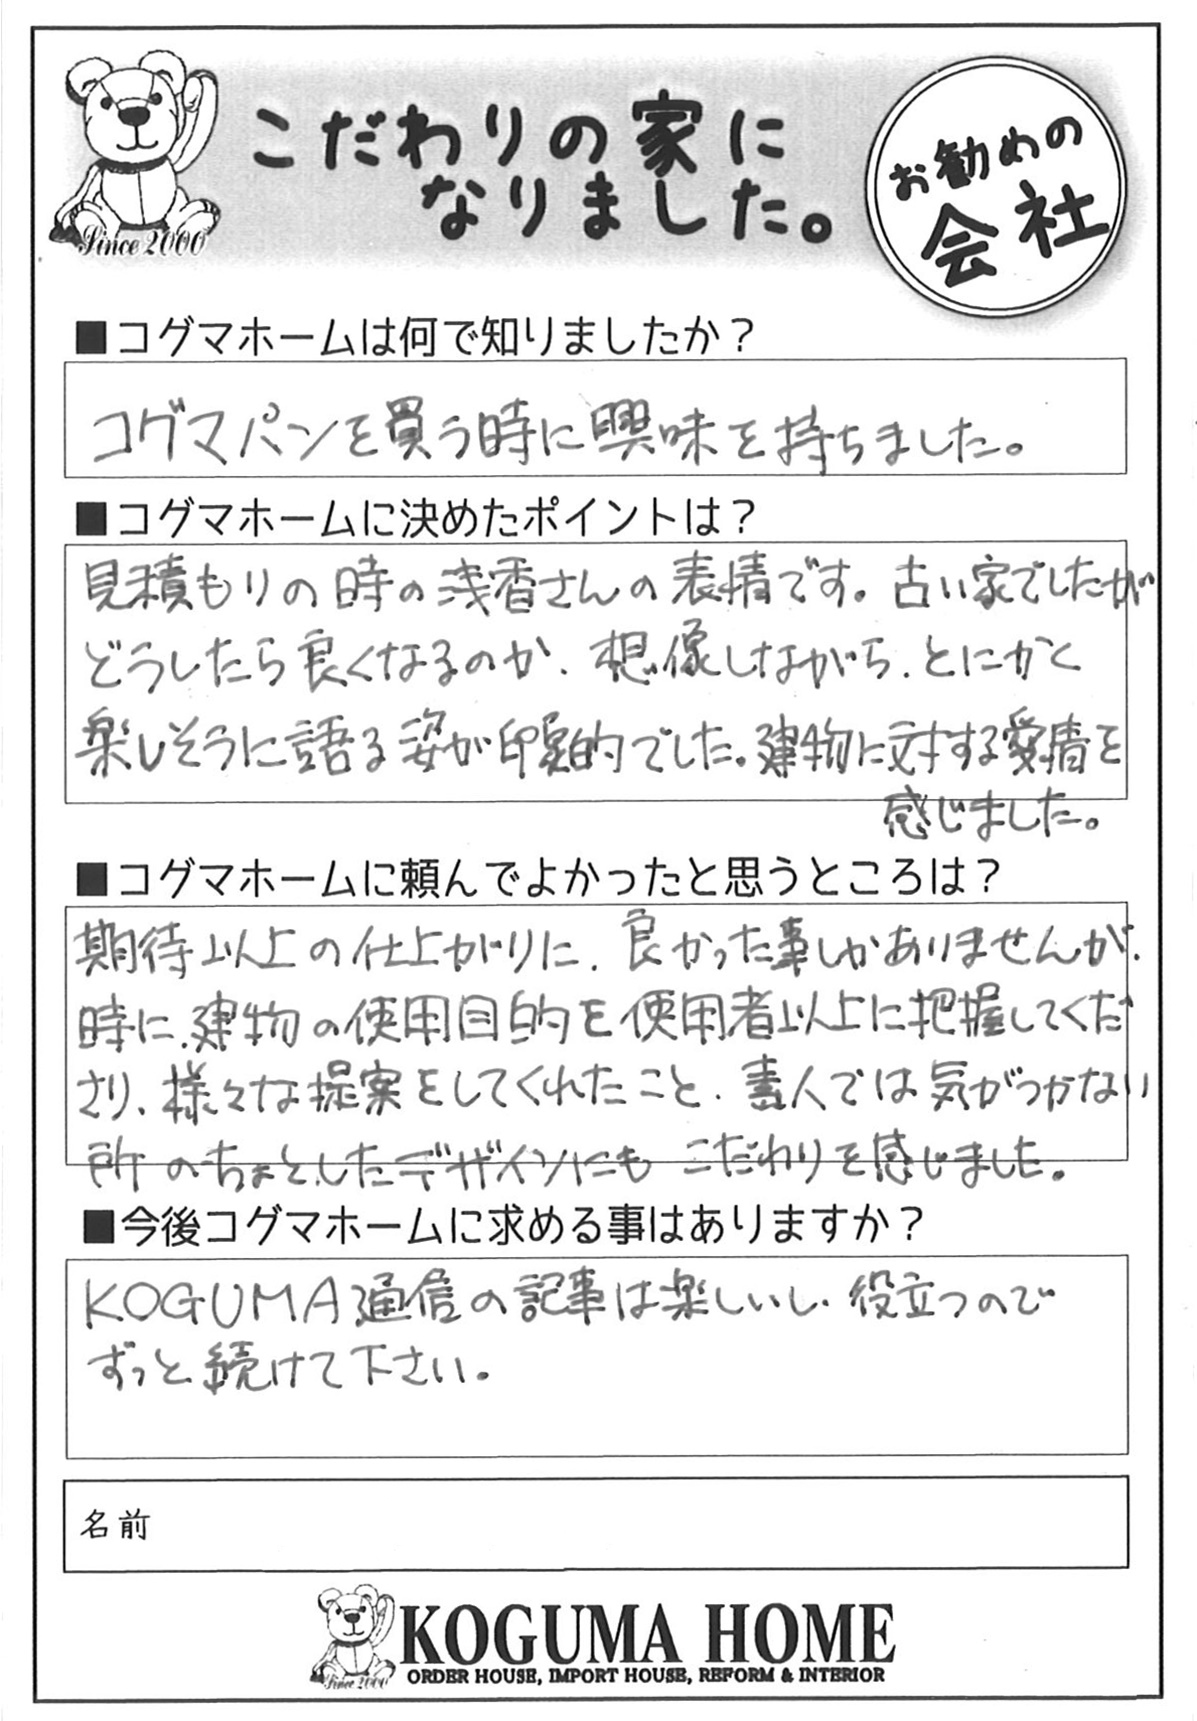 こだわりの家に
なりました。
お勧めの
会社
Since 2000
■コグマホームは何で知りましたか？
コグマパンを買う時に興味を持ちました。
■コグマホームに決めたポイントは？
見積もりの時の浅香さんの表情です。古い家でしたが
どうしたら良くなるのか、想像しながら、とにかく
楽しそうに語る姿が印象的でした。建物に対する愛情を
感じました。
■コグマホームに頼んでよかったと思うところは？
期待以上の仕上がりに、良かった事しかありませんが、
時に、建物の使用目的を使用者以上に把握してくだ
さり、様々な提案をしてくれたこと、素人では気がつかない
所のちょっとしたデザインにもこだわりを感じました。
■今後コグマホームに求める事はありますか？
KOGUMA通信の記事は楽しいし、役立つので
ずっと続けて下さい。
名前
KOGUMA HOME
Since 2000
ORDER HOUSE, IMPORT HOUSE, REFORM & INTERIOR